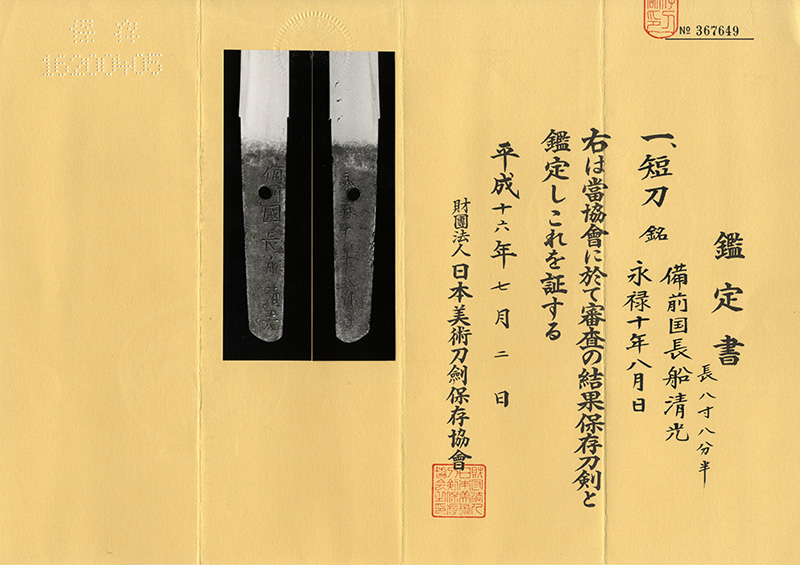 № 367649
鑑定書
一、短刀 銘 備前国長船清光
永禄十年八月日
長八寸八分半
右は當協會に於て審査の結果保存刀剣と
鑑定しこれを証する
平成十六年七月二日
財團法人日本美術刀劍保存協會
保存
16200405
備前國長船清光
永禄十年八月日